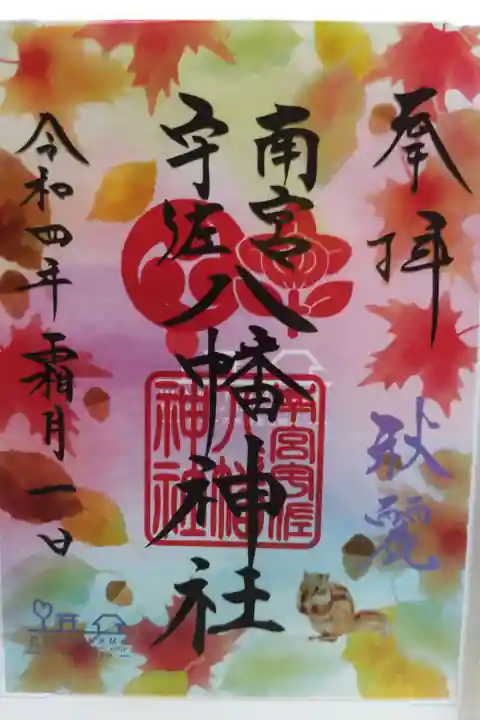 奉拝
秋麗
南宮
宇佐
八幡神社
令和四年霜月一日
南宮宇佐
八幡
神社